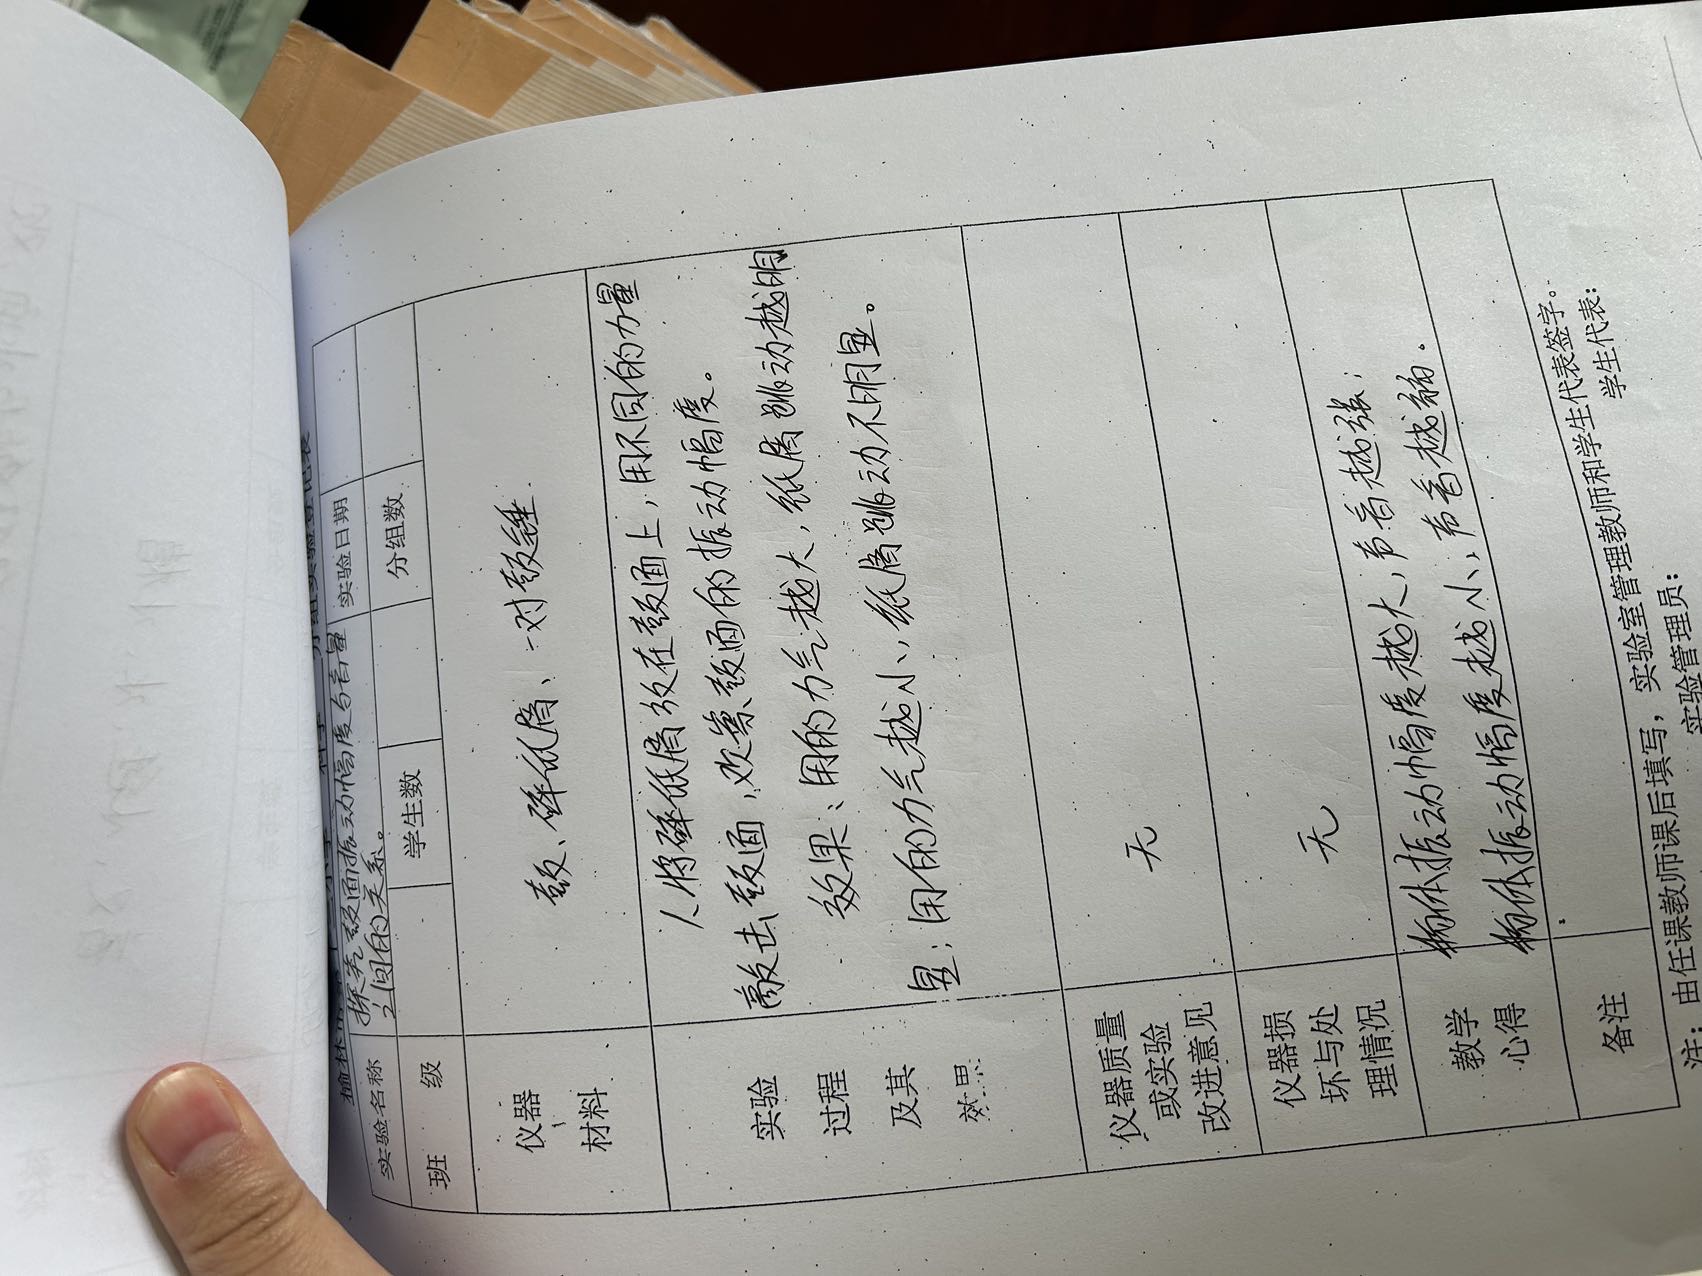 实验名称 探究鼓面振动幅度与音量之间的关系。 实验日期
班 级 学生数 分组数
仪器材料 鼓、碎纸屑、一对鼓锤
实验过程及其效果
人将碎纸屑放在鼓面上，用不同的力量
敲击鼓面，观察鼓面的振动幅度。
效果：用的力气越大，纸屑跳动越明
显；用的力气越小，纸屑跳动不明显。
仪器质量或实验改进意见 无
仪器损坏与处理情况 无
教学心得
物体振动幅度越大，声音越强；
物体振动幅度越小，声音越弱。
备注
注：由任课教师课后填写，实验室管理教师和学生代表签字。
实验管理员： 学生代表：